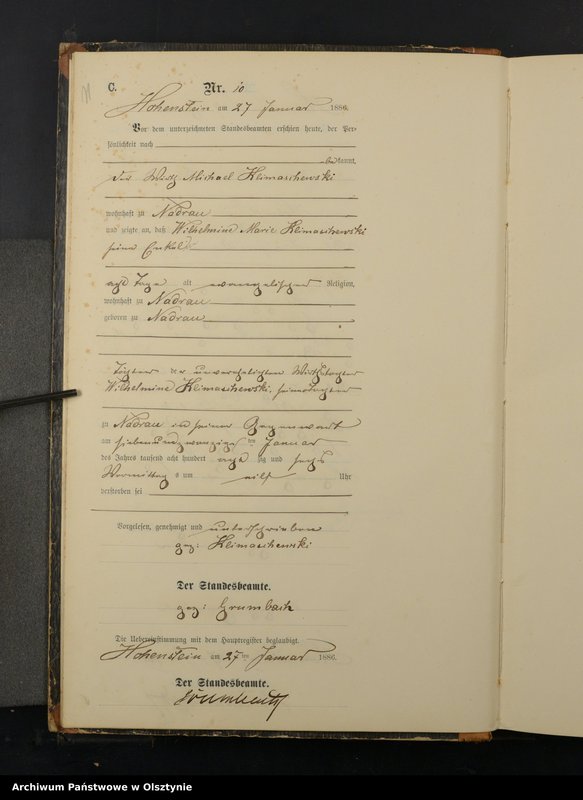 C. Nr. 10
Hohenstein am 27 Januar 1886.
Vor dem unterzeichneten Standesbeamten erschien heute, der Per-
sönlichkeit nach
bekannt,
der Wirth Michael Klimaschewski
wohnhaft zu Nadrau
und zeigte an, daß Wilhelmine Marie Klimaschewski
seine Enkel
acht Tage alt evangelischer Religion,
wohnhaft zu Nadrau
geboren zu Nadrau
Tochter der unverehelichten Wirthstochter
Wilhelmine Klimaschewski, seiner Tochter
zu Nadrau in seiner Gegenwart
am siebenundzwanzigsten ten Januar
des Jahres tausend acht hundert achtzig und sechs
Vormittags um eilf Uhr
verstorben sei
Vorgelesen, genehmigt und unterschrieben
gez: Klimaschewski
Der Standesbeamte.
gez: Grumbach
Die Uebereinstimmung mit dem Hauptregister beglaubigt.
Hohenstein am 27ten Januar 1886.
Der Standesbeamte.
Grumbach
Archiwum Państwowe w Olsztynie